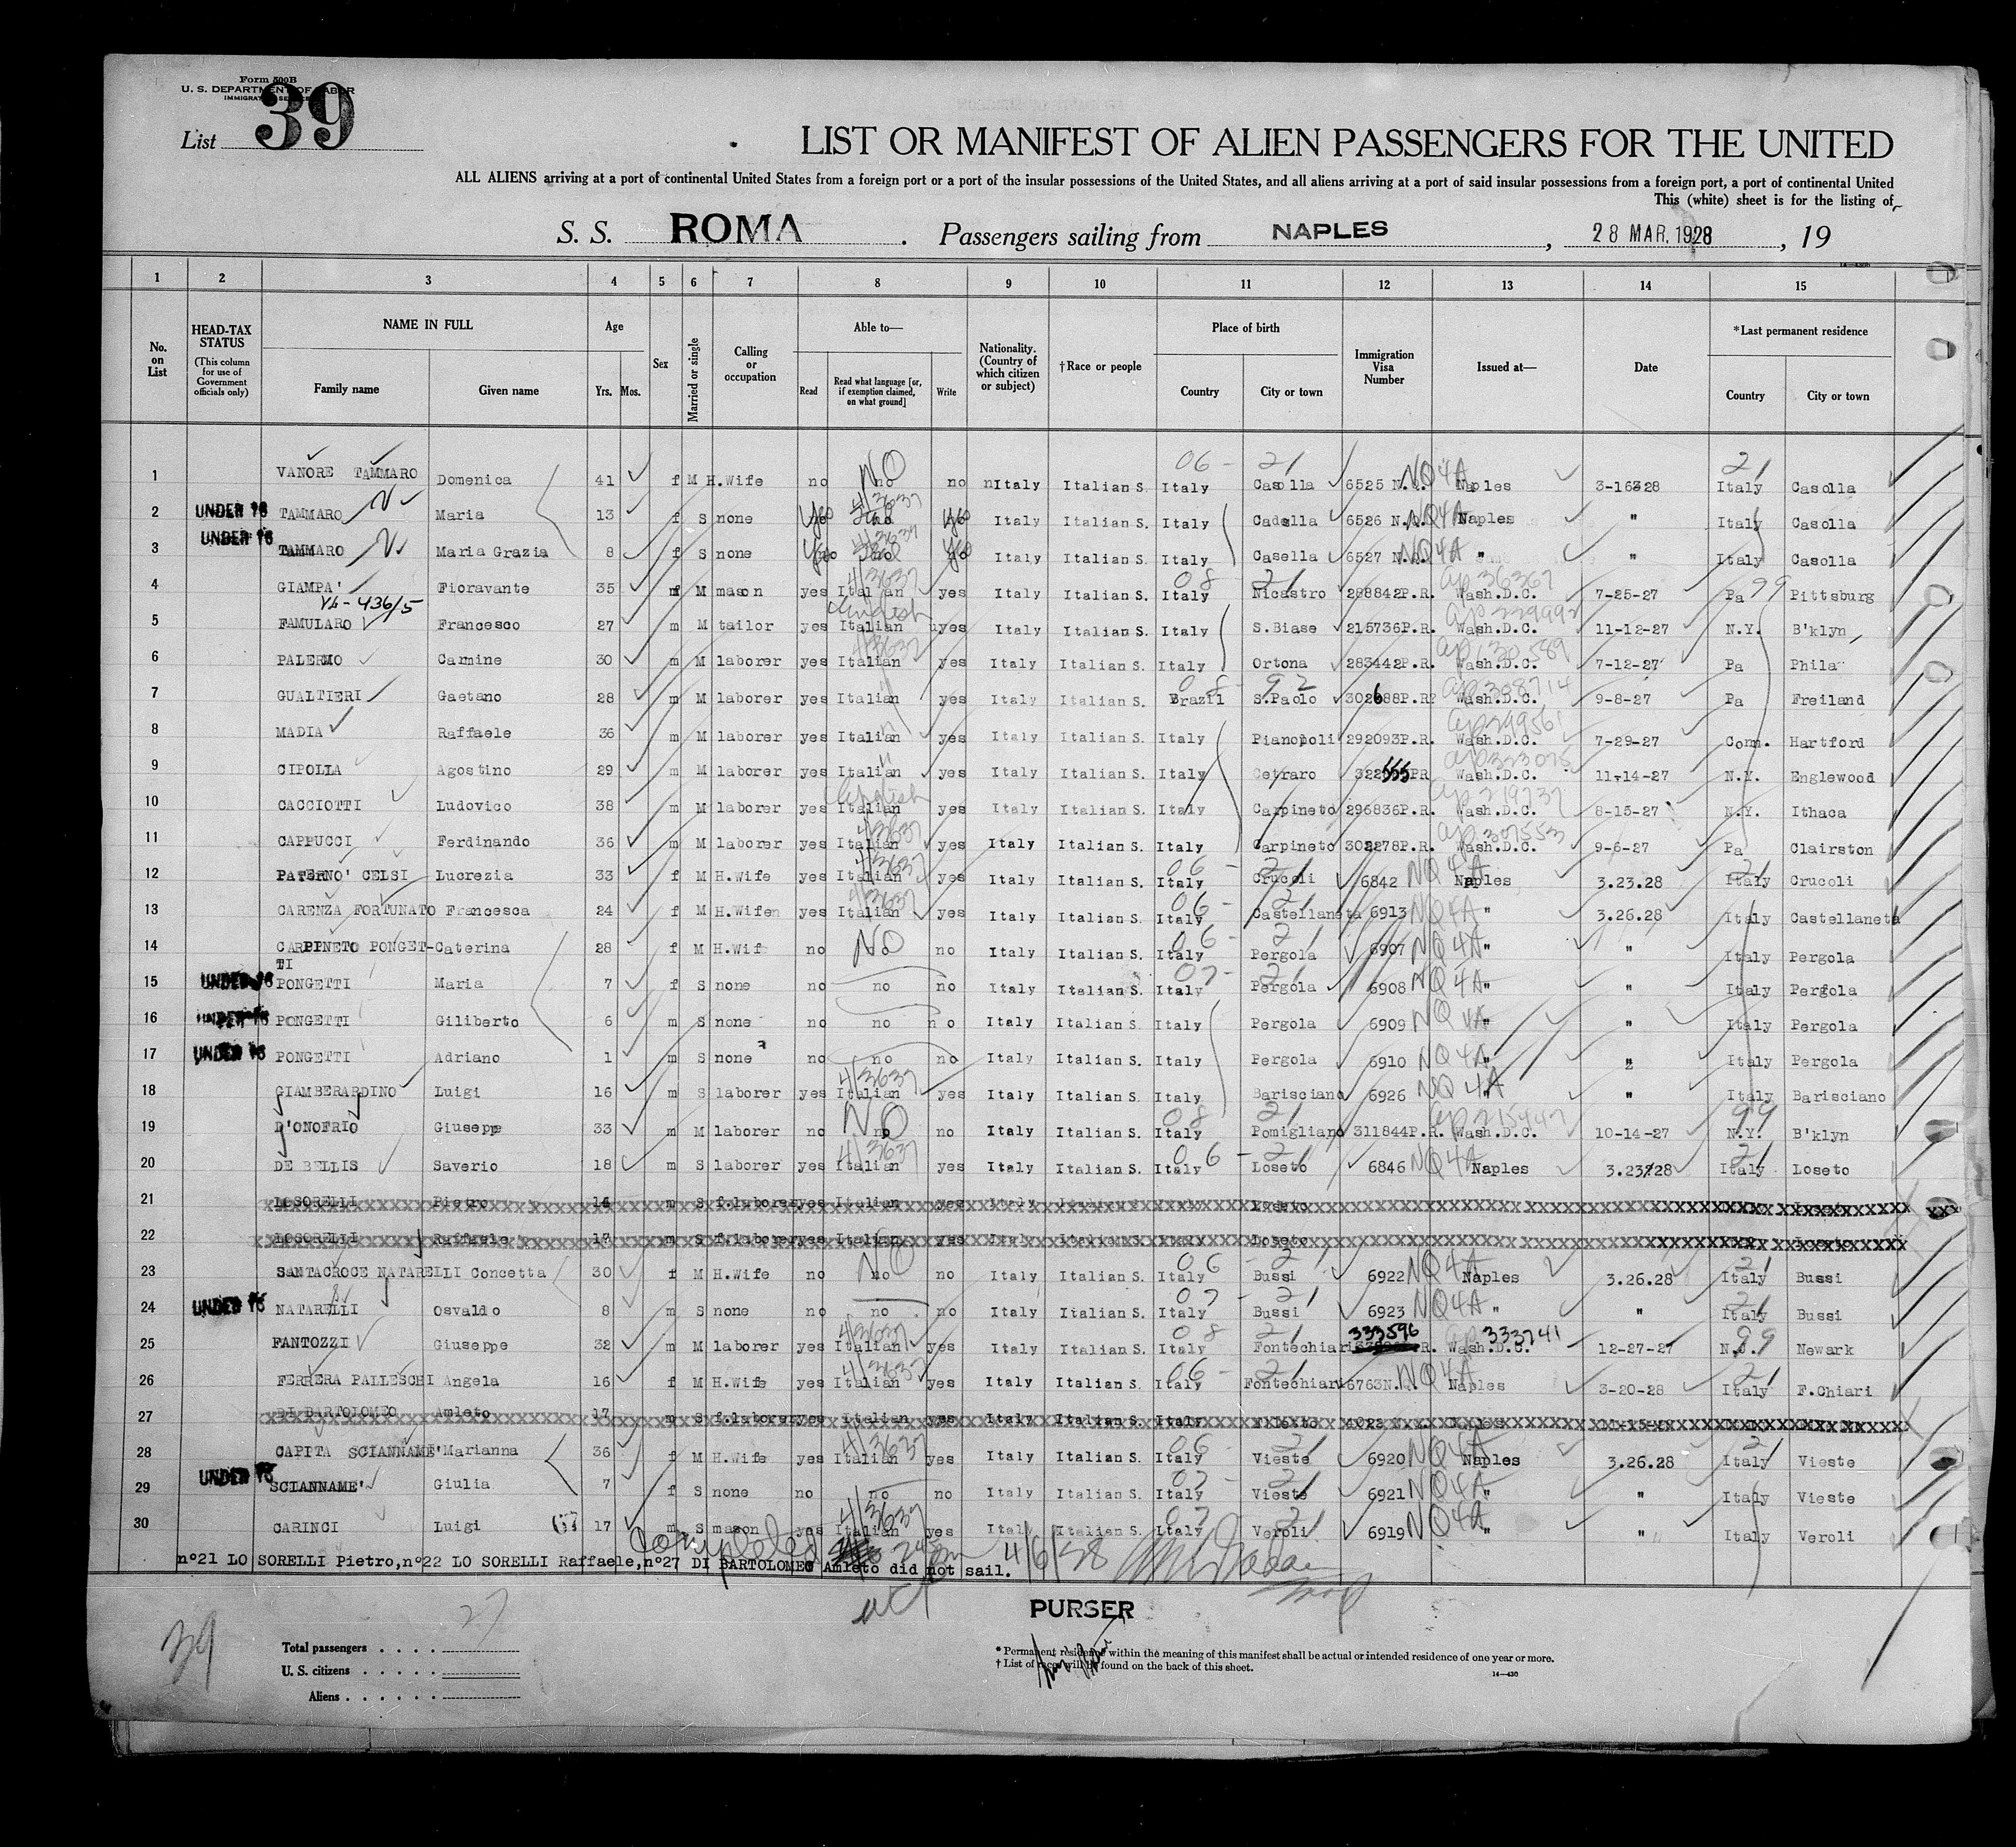 Form 500B
U. S. DEPARTMENT OF LABOR
List 39
LIST OR MANIFEST OF ALIEN PASSENGERS FOR THE UNITED
ALL ALIENS arriving at a port of continental United States from a foreign port or a port of the insular possessions of the United States, and all aliens arriving at a port of said insular possessions from a foreign port, a port of continental United
This (white) sheet is for the listing of
S. S. ROMA . Passengers sailing from NAPLES , 28 MAR. 1928 , 19
1 2 3 4 5 6 7 8 9 10 11 12 13 14 15
No. on List HEAD-TAX STATUS (This column for use of Government officials only) NAME IN FULL Family name Given name Age Yrs. Mos. Sex Married or single Calling or occupation Able to— Read Read what language [or, if exemption claimed, on what ground] Write Nationality. (Country of which citizen or subject) †Race or people Place of birth Country City or town Immigration Visa Number Issued at— Date *Last permanent residence Country City or town
1 VANORE TAMMARO Domenica 41 f M H.Wife no no NO no Italy Italian S. Italy 06 - 21 Casolla 6525 N.Q. NQ4A Naples 3-16-28 21 Italy Casolla
2 UNDER 16 TAMMARO Maria 13 f S none yes yes Italy Italian S. Italy 6526 N.Q. NQ4A Naples " Italy Casolla
3 UNDER 16 TAMMARO Maria Grazia 8 f S none yes yes Italy Italian S. Italy Casella 6527 NQ4A " " Italy Casolla
4 GIAMPA' Fioravante 35 M mason yes Italian yes Italy Italian S. Italy 08 21 Nicastro 288842P.R. Wash.D.C. 7-25-27 Pa 99 Pittsburg
5 FAMULARO Francesco 27 m M tailor yes Italian English yes Italy Italian S. Italy S.Biase 215736P.R. Wash.D.C. 11-12-27 N.Y. B'klyn
6 PALERMO Carmine 30 m M laborer yes Italian yes Italy Italian S. Italy Ortona 283442P.R. Wash.D.C. 7-12-27 Pa Phila
7 GUALTIERI Gaetano 28 m M laborer yes Italian yes Italy Italian S. Brazil S.Paolo 302688P.R. Wash.D.C. 9-8-27 Pa Freiland
8 MADIA Raffaele 36 m M laborer yes Italian yes Italy Italian S. Italy Pianopoli 292093P.R. Wash.D.C. 7-29-27 Conn. Hartford
9 CIPOLLA Agostino 29 m M laborer yes Italian yes Italy Italian S. Italy Cetraro 322555PR Wash.D.C. 11-14-27 N.Y. Englewood
10 CACCIOTTI Ludovico 38 m M laborer yes Italian English yes Italy Italian S. Italy Carpineto 296836P.R. Wash.D.C. 8-15-27 N.Y. Ithaca
11 CAPPUCCI Ferdinando 36 m M laborer yes Italian yes Italy Italian S. Italy Carpineto Wash.D.C. 9-6-27 Pa Clairston
12 PATERNO' CELSI Lucrezia 33 f M H.Wife yes Italian yes Italy Italian S. Italy 06 - 21 Crucoli 6842 NQ4A Naples 3.23.28 21 Italy Crucoli
13 CARENZA FORTUNATO Francesca 24 f M H.Wife yes Italian yes Italy Italian S. Italy 06 - 21 Castellaneta 6913 NQ4A " 3.26.28 Italy Castellaneta
14 CARPINETO PONGET-TI Caterina 28 f M H.Wif no no NO no Italy Italian S. Italy 06 - 21 Pergola 6907 NQ4A " " Italy Pergola
15 UNDER 16 PONGETTI Maria 7 f S none no no no Italy Italian S. Italy 07 - 21 Pergola 6908 NQ4A " " Italy Pergola
16 UNDER 16 PONGETTI Giliberto 6 m S none no no no Italy Italian S. Italy Pergola 6909 NQ4A " " Italy Pergola
17 UNDER 16 PONGETTI Adriano 1 m S none no no no Italy Italian S. Italy Pergola 6910 NQ4A " " Italy Pergola
18 GIAMBERARDINO Luigi 16 m S laborer yes Italian yes Italy Italian S. Italy Barisciano 6926 NQ4A " " Italy Barisciano
19 D'ONOFRIO Giusepp 33 m M laborer no no NO no Italy Italian S. Italy 08 21 Pomigliano 311844P.R. Wash.D.C. 10-14-27 99 N.Y. B'klyn
20 DE BELLIS Saverio 18 m S laborer yes Italian yes Italy Italian S. Italy 06 - 21 Loseto 6846 NQ4A Naples 3.23.28 21 Italy Loseto
21 LOSORELLI Pietro 16 m S f.laborer yes Italian yes Italy Italian S. Italy Loseto
22 LOSORELLI Raffaele 17 m S f.laborer yes Italian yes Italy Italian S. Italy Loseto
23 SANTACROCE NATARELLI Concetta 30 f M H.Wife no no NO no Italy Italian S. Italy 06 - 21 Bussi 6922 NQ4A Naples 3.26.28 21 Italy Bussi
24 UNDER 16 NATARELLI Osvaldo 8 m S none no no no Italy Italian S. Italy 07 - 21 Bussi 6923 NQ4A " " 21 Italy Bussi
25 FANTOZZI Giuseppe 32 m M laborer yes Italian yes Italy Italian S. Italy 08 21 Fontechiari 333596 Wash.D.C. 333741 12-27-27 99 N.J. Newark
26 FERRERA PALLESCHI Angela 16 f M H.Wife yes Italian yes Italy Italian S. Italy 06 - 21 Fontechiari 6763N.Q. NQ4A Naples 3-20-28 21 Italy F.Chiari
27 DI BARTOLOMEO Amleto 17 m S f.laborer yes Italian yes Italy Italian S. Italy
28 CAPITA SCIANNAME' Marianna 36 f M H.Wife yes Italian yes Italy Italian S. Italy 06 - 21 Vieste 6920 NQ4A Naples 3.26.28 21 Italy Vieste
29 UNDER 16 SCIANNAME' Giulia 7 f S none no no no Italy Italian S. Italy 07 - 21 Vieste 6921 NQ4A " " Italy Vieste
30 CARINCI Luigi 17 m S mason yes Italian yes Italy Italian S. Italy 07 21 Veroli 6919 NQ4A " " Italy Veroli
n°21 LO SORELLI Pietro,n°22 LO SORELLI Raffaele,n°27 DI BARTOLOMEO Amleto did not sail.
Completed 4/6/28
PURSER
39
Total passengers . . . . 27
U. S. citizens . . . . .
Aliens . . . . . .
* Permanent residence within the meaning of this manifest shall be actual or intended residence of one year or more.
† List of races will be found on the back of this sheet.
14—430